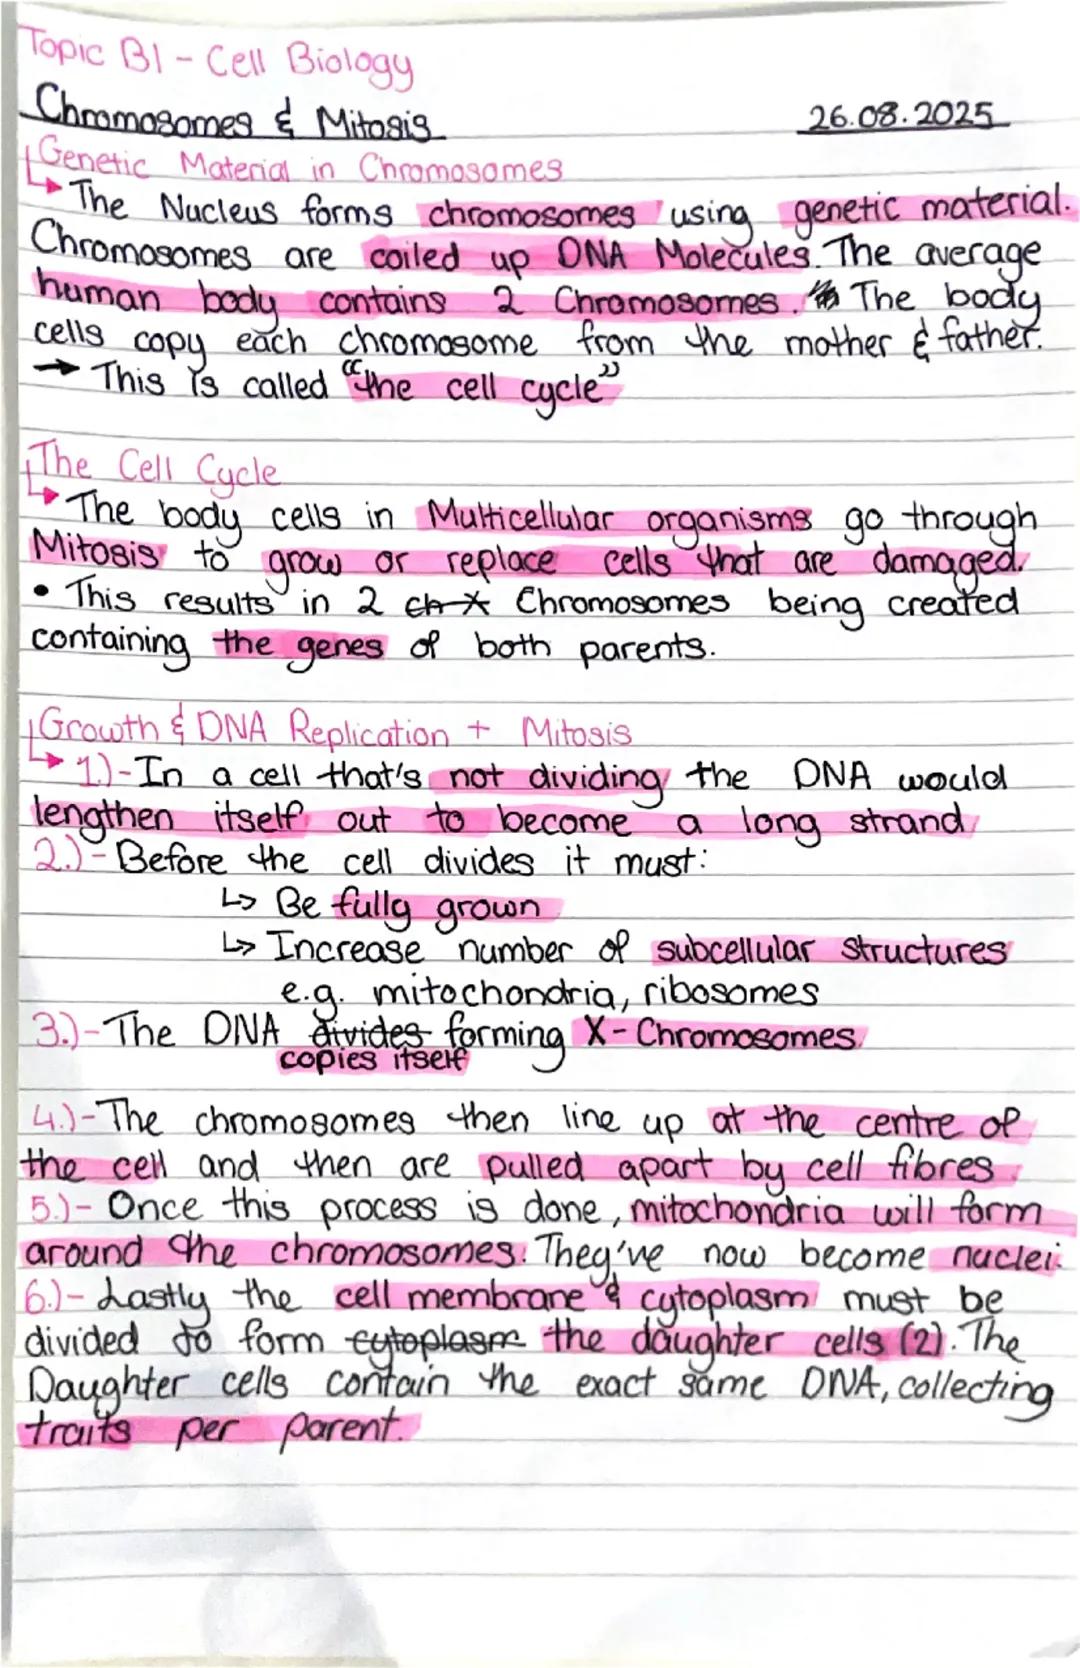 Topic B1 - Cell Biology
Chromosomes & Mitosis 26.08.2025
Genetic Material in Chromosomes
↳ The Nucleus forms chromosomes using genetic material.
Chromosomes are coiled up DNA Molecules. The average
human body contains 2 Chromosomes. The body
cells copy each chromosome from the mother & father.
→ This is called "the cell cycle"
The Cell Cycle
↳ The body cells in Multicellular organisms go through
Mitosis to grow or replace cells that are damaged.
• This results in 2 ch X Chromosomes being created
containing the genes of both parents.
Growth & DNA Replication + Mitosis
↳ 1.)-In a cell that's not dividing the DNA would
lengthen itself out to become a long strand
2.)-Before the cell divides it must:
↳ Be fully grown
↳ Increase number of subcellular structures
e.g. mitochondria, ribosomes
3.)-The DNA divides forming X-Chromosomes.
copies itself
4.)-The chromosomes then line up at the centre of
the cell and then are pulled apart by cell fibres.
5.)- Once this process is done, mitochondria will form
around the chromosomes. They've now become nuclei.
6.)- Lastly the cell membrane & cytoplasm must be
divided to form cytoplasm the daughter cells (2). The
Daughter cells contain the exact same DNA, collecting
traits per parent.